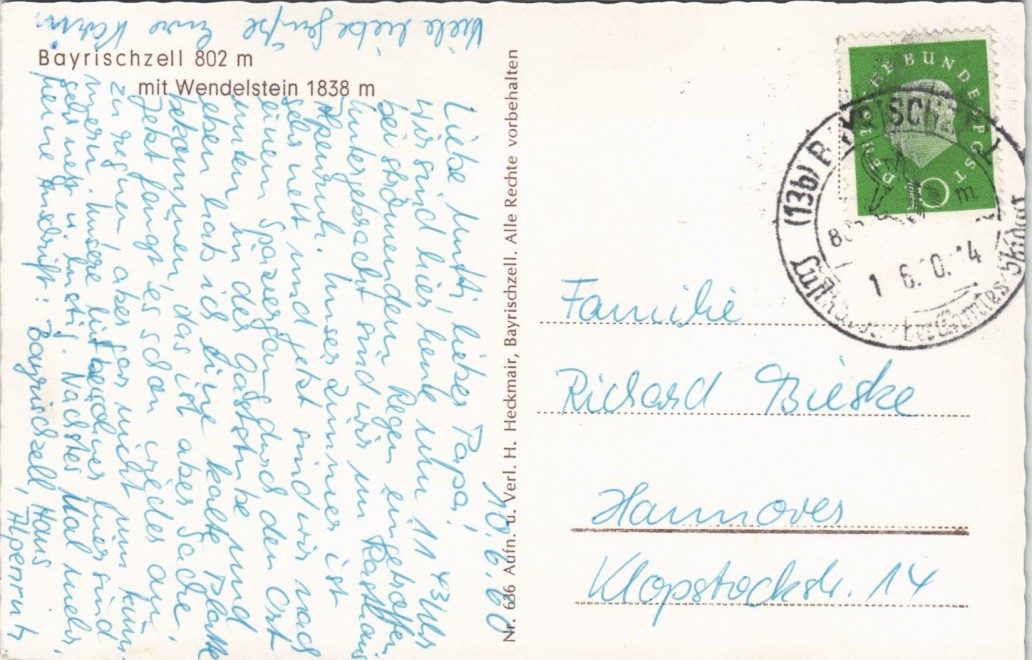 Bayrischzell 802 m
mit Wendelstein 1838 m
10.6.60
Liebe Mutti, lieber Papa!
wir sind hier heute um 11 43 Uhr
bei strömendem Regen eingetroffen.
Untergebracht sind wir im Gästehaus
Alpenruh. Unser Zimmer ist
sehr nett und jetzt sind wir nach
einem Spaziergang durch den Ort
unten in der Gaststube und
eben hat sich eine kalte Platte
bekommen, das ist aber Sache.
Jetzt fängt es schon wieder an
zu regnen, aber gar nicht zum
mern. Unsere Mitbewohner hier sind
sehr nett u. lustig. Nächstes Mal mehr.
Meine Anschrift: Bayrischzell Haus
Alpenruh
Viele liebe Grüße Eure Karin
Nr. 636 Aufn. u. Verl. H. Heckmair, Bayrischzell. Alle Rechte vorbehalten
DEUTSCHE BUNDESPOST
10
(13b) BAYRISCHZELL
m
1 6.60.14
Familie
Richard Bieske
Hannover
Klopstockstr. 14